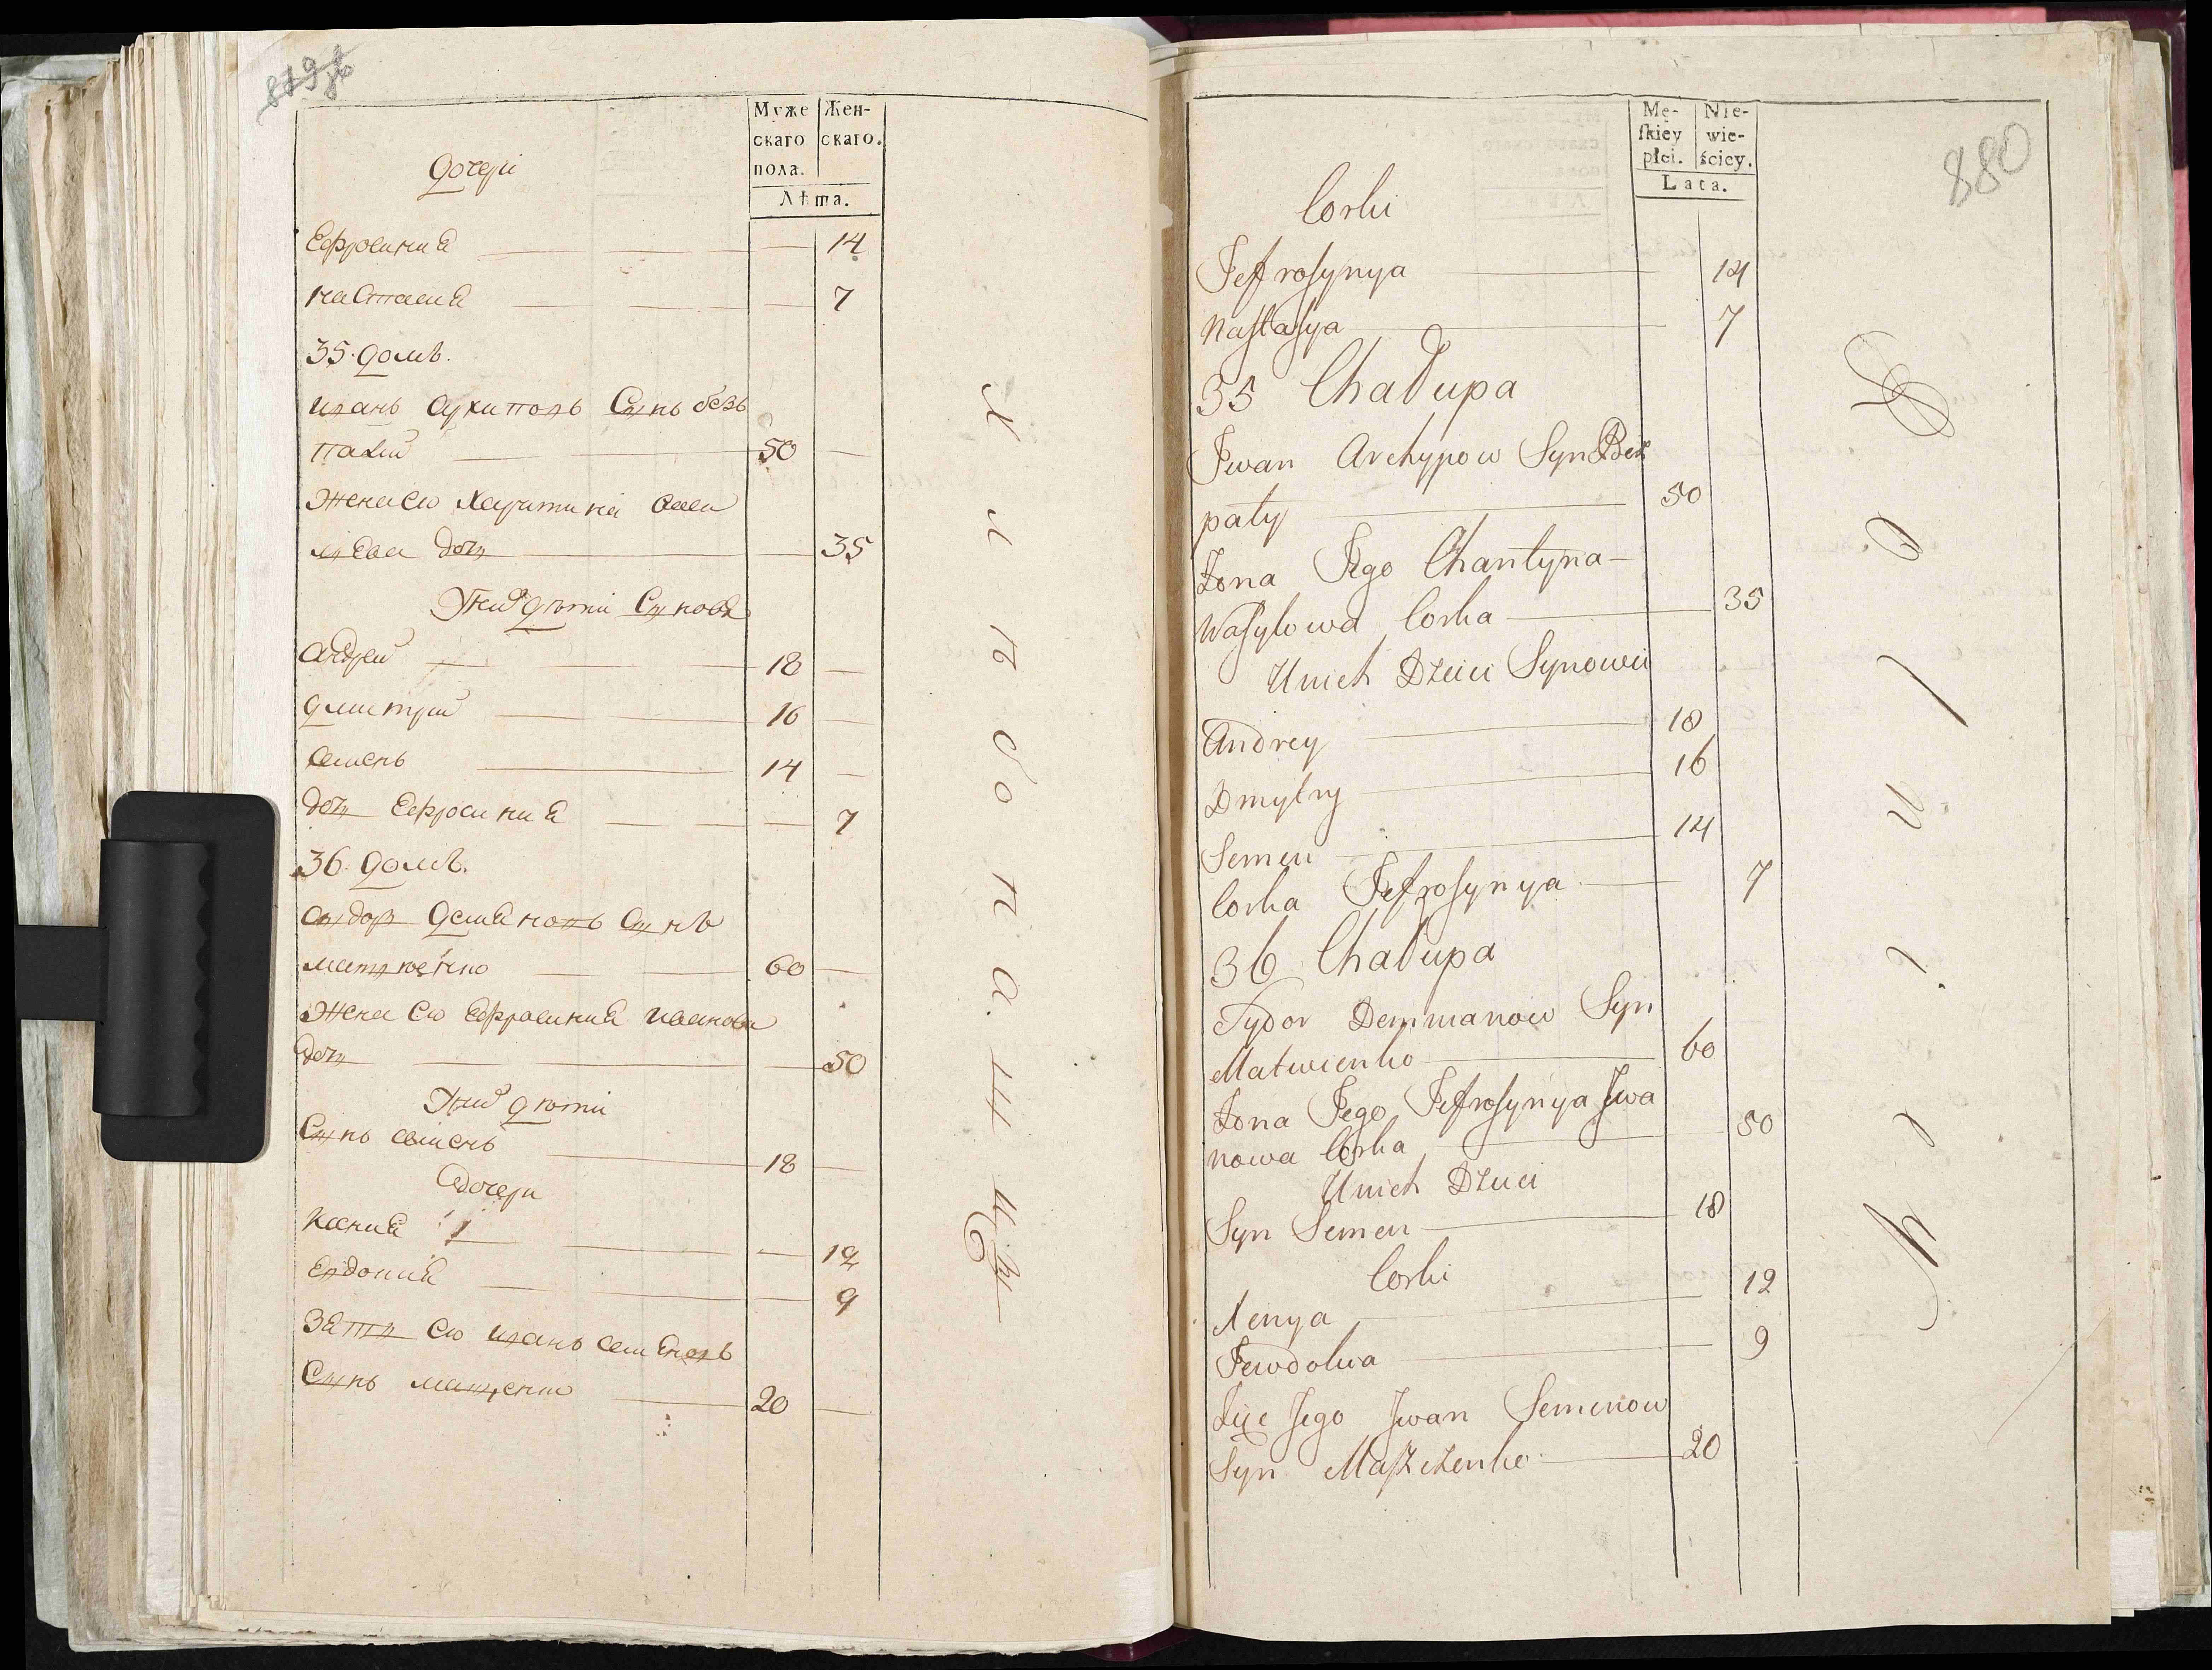 Муже скаго пола.
Жен- скаго.
Лѣта.
дочери
Ефросиния 14
настасия 7
35. домъ.
иванъ Архиповъ Сынъ безъ
палий 50
жена ево Харитина васи
лева дочь 35
Унихъ дѣти Синовя
андрей 18
дмитрий 16
семенъ 14
дочь Ефросиния 7
36. домъ.
сидор демяновъ Сынъ
матвѣенко 60
жена ево Ефросиния иванова
дочь 50
Унихъ дѣти
Сынъ семенъ 18
дочери
Ксения 12
Евдокия 9
Зять ево иванъ семеновъ
Сынъ мащенко 20
Mę- skiey płci.
Nie- wie- ściey.
Lata.
880
Corki
Jefrosynya 14
Nastasya 7
35 Chałupa
Jwan Archypow Syn Bez
pały 50
Żona Jego Charytyna
Wasylowa Corka 35
Unich Dzieci Synowei
Andrey 18
Dmytry 16
Semen 14
Corka Jefrosynya 7
36 Chałupa
Sydor Demmanow Syn
Matwienko 60
Żona Jego Jefrosynya Jwa
nowa Corka 50
Unich Dzieci
Syn Semen 18
Corki
Xenya 12
Jewdokia 9
Zięc Jego Jwan Semenow
Syn Maszczenko 20